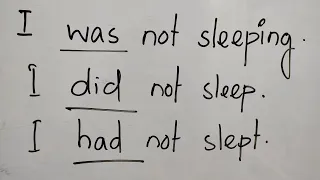 I was not sleeping.
I did not sleep.
I had not slept.